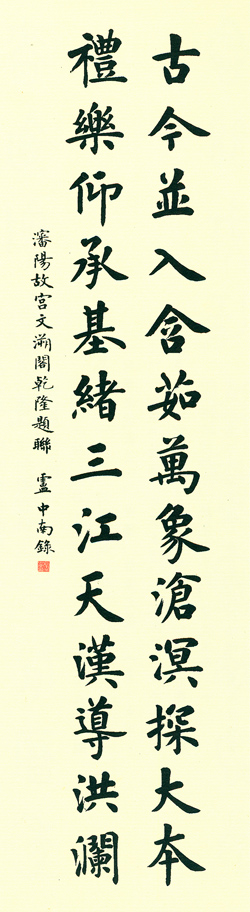 古今並入含茹萬象滄溟探大本
禮樂仰承基緒三江天漢導洪瀾
瀋陽故宮文溯閣乾隆題聯 盧中南錄